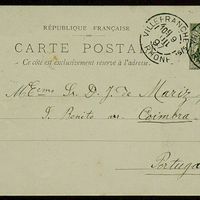 RÉPUBLIQUE FRANÇAISE
CARTE POSTA
Ce côté est exclusivement réservé à l'adresse.
VILLEFRANCHE
RHONE
Sr. D. J. de Mariz
Coimbra
Portuga